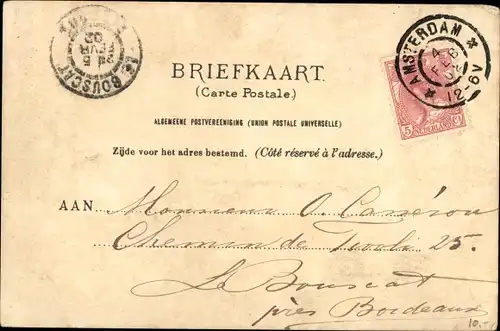 LE BOUSCAT
2E 5
FEVR
02
BRIEFKAART.
(Carte Postale.)
AMSTERDAM
4
FEB
12-6V
5 NEDERLAND Ct
ALGEMEENE POSTVEREENIGING (UNION POSTALE UNIVERSELLE)
Zijde voor het adres bestemd. (Côté réservé à l'adresse.)
AAN Monsieur O. Camérou
Chemin de Tivoli 25.
Le Bouscat
près Bordeaux
10.-